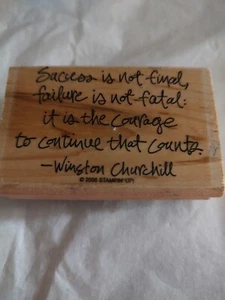 Success is not final,
failure is not fatal:
it is the courage
to continue that counts.
-Winston Churchill
© 2006 STAMPIN' UP!